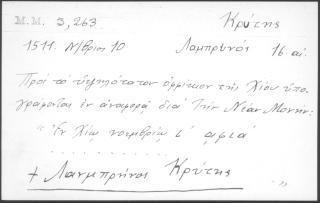 M.M. 3,263 Κρύτης
1511. Ν/βριος 10 Λαμπρινός 16. αι.
Πρὸς τὸ ὑψηλότατον ὀφφίκιον τῆς Χίου ὑπο-
γραμμένος ἐν ἀναφορᾷ διὰ τὴν Νέαν Μονήν:
"Ἐν Χίῳ νοεμβρίῳ ι' αφια'
. . . . . . . . . .
+ Λαυμπρηνός Κρύτης